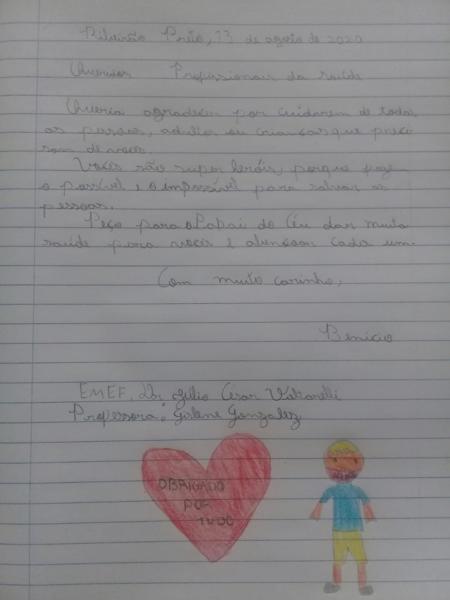 Ribeirão Preto, 13 de agosto de 2020
Queridos Profissionais da saúde
Queria agradecer por cuidarem de todas
as pessoas, adultos ou crianças que preci
sam de vocês.
Vocês são super heróis, porque faz
o possível e o impossível para salvar as
pessoas.
Peço para o Papai do Céu dar muita
saúde para vocês e abençoar cada um.
Com muito carinho,
Benicio
EMEF. Dr. Júlio César
Professora: Gislane Gonzalez
OBRIGADO
POR
TUDO